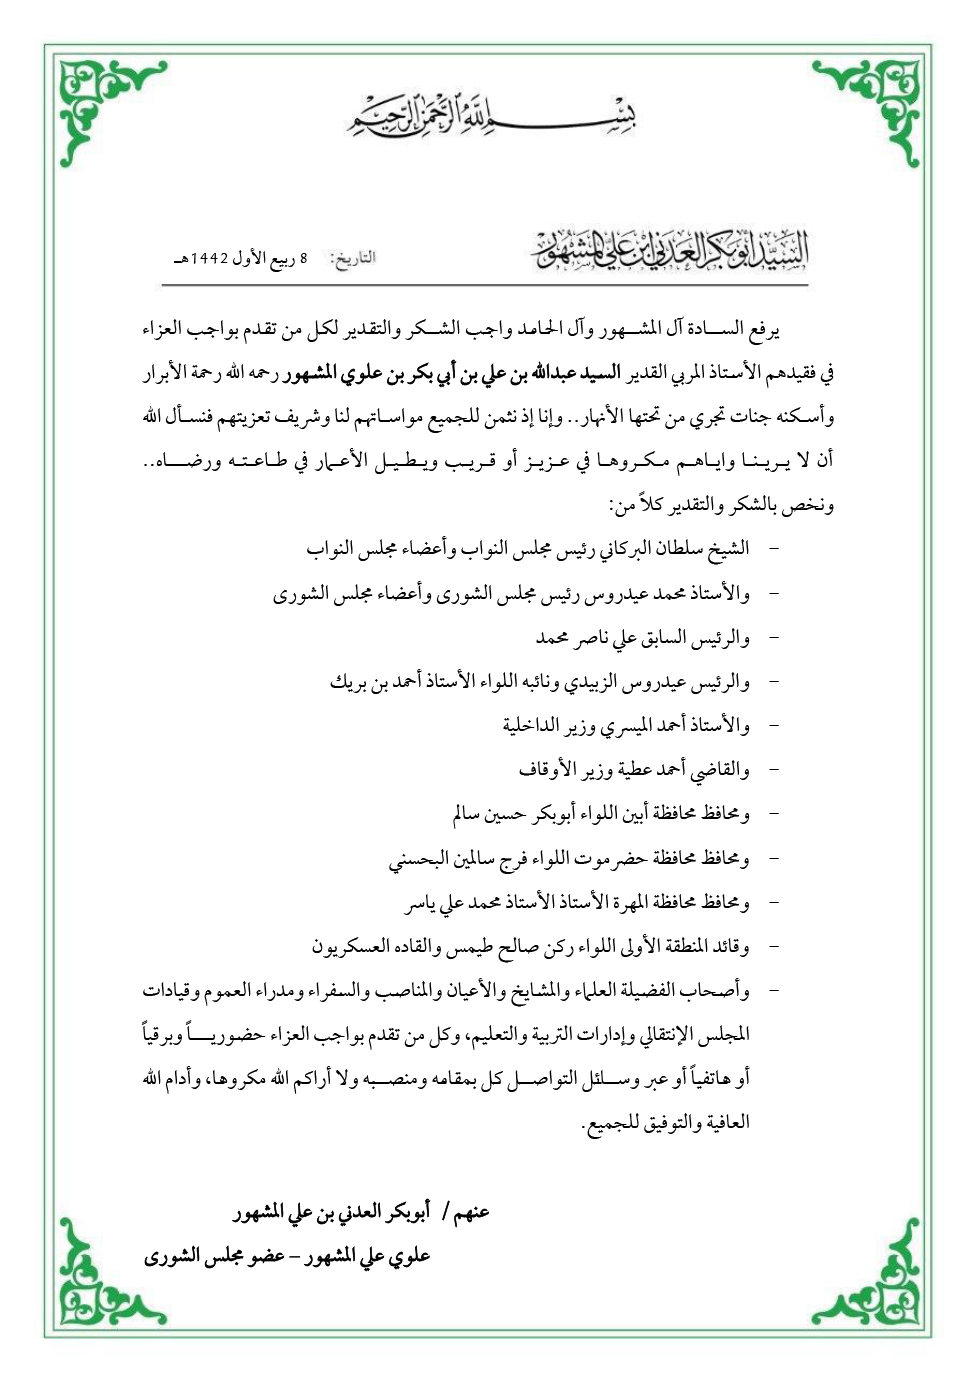 بِسْمِ اللَّهِ الرَّحْمَٰنِ الرَّحِيمِ
السيد أبوبكر العدني ابن علي المشهور
التاريخ: 8 ربيع الأول 1442هـ
يرفع الســادة آل المشــهور وآل الحامد واجب الشــكر والتقدير لكل من تقدم بواجب العزاء
في فقيدهم الأستاذ المربي القدير السيد عبدالله بن علي بن أبي بكر بن علوي المشهور رحمه الله رحمة الأبرار
وأسكنه جنات تجري من تحتها الأنهار.. وإنا إذ نثمن للجميع مواساتهم لنا وشريف تعزيتهم فنسأل الله
أن لا يرينا واياهم مكروها في عزيز أو قريب ويطيل الأعمار في طاعته ورضاه..
ونخص بالشكر والتقدير كلاً من:
– الشيخ سلطان البركاني رئيس مجلس النواب وأعضاء مجلس النواب
– والأستاذ محمد عيدروس رئيس مجلس الشورى وأعضاء مجلس الشورى
– والرئيس السابق علي ناصر محمد
– والرئيس عيدروس الزبيدي ونائبه اللواء الأستاذ أحمد بن بريك
– والأستاذ أحمد الميسري وزير الداخلية
– والقاضي أحمد عطية وزير الأوقاف
– ومحافظ محافظة أبين اللواء أبوبكر حسين سالم
– ومحافظ محافظة حضرموت اللواء فرج سالمين البحسني
– ومحافظ محافظة المهرة الأستاذ الأستاذ محمد علي ياسر
– وقائد المنطقة الأولى اللواء ركن صالح طيمس والقاده العسكريون
– وأصحاب الفضيلة العلماء والمشايخ والأعيان والمناصب والسفراء ومدراء العموم وقيادات
المجلس الإنتقالي وإدارات التربية والتعليم، وكل من تقدم بواجب العزاء حضوريــاً وبرقياً
أو هاتفياً أو عبر وســائل التواصــل كل بمقامه ومنصــبه ولا أراكم الله مكروها، وأدام الله
العافية والتوفيق للجميع.
عنهم / أبوبكر العدني بن علي المشهور
علوي علي المشهور – عضو مجلس الشورى